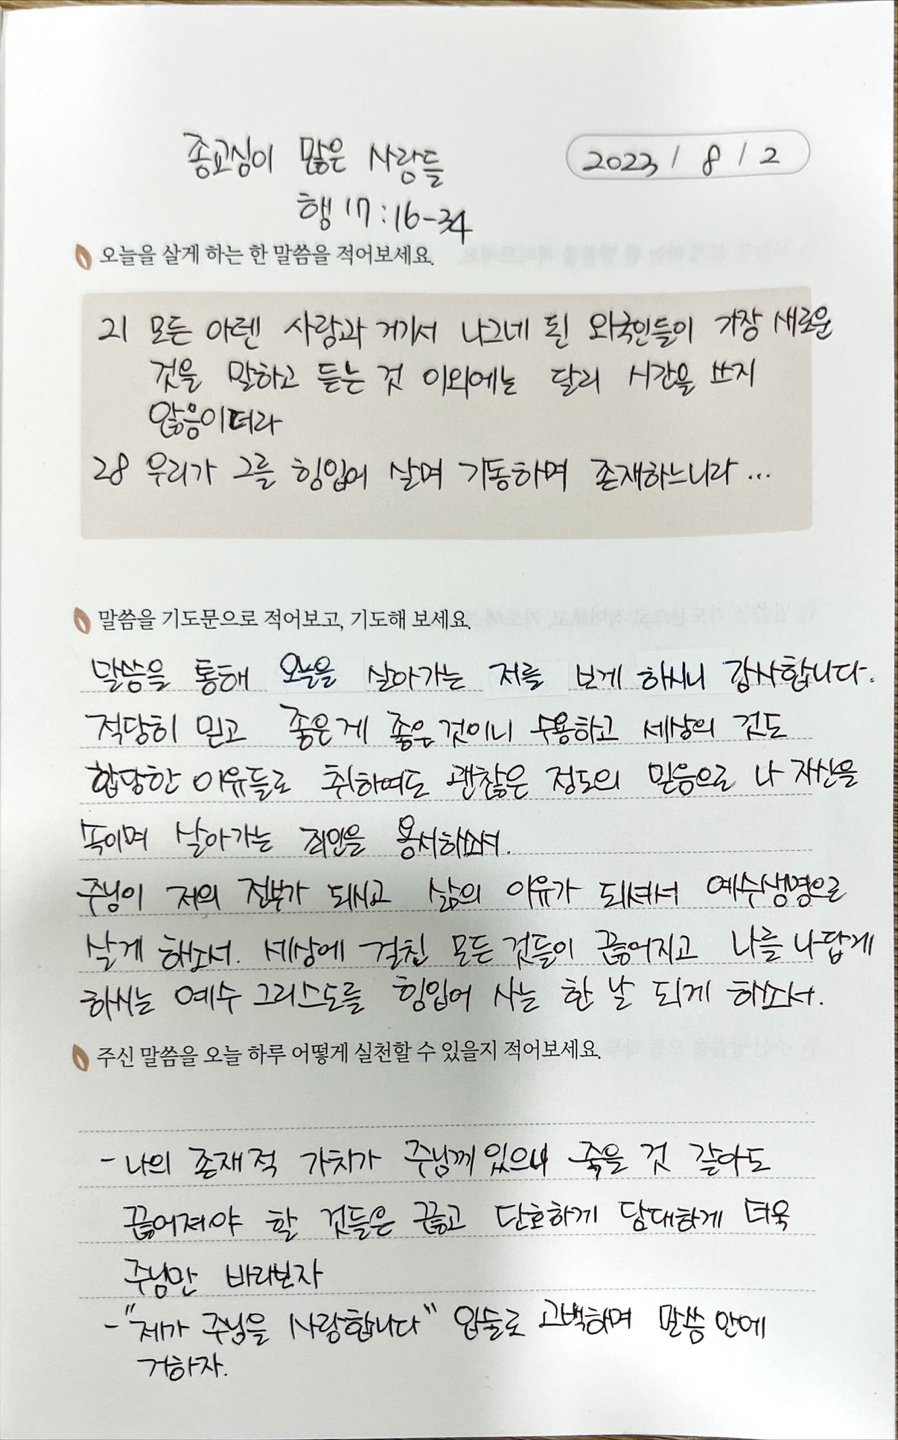 종교심이 많은 사람들
2023 / 8 / 2
행 17:16-34
오늘을 살게 하는 한 말씀을 적어보세요.
21 모든 아덴 사람과 거기서 나그네 된 외국인들이 가장 새로운
것을 말하고 듣는 것 이외에는 달리 시간을 쓰지
않음이더라
28 우리가 그를 힘입어 살며 기동하며 존재하느니라 ...
말씀을 기도문으로 적어보고, 기도해 보세요.
말씀을 통해 오늘을 살아가는 저를 보게 하시니 감사합니다.
적당히 믿고 좋은게 좋은것이니 수용하고 세상의 것도
합당한 이유들로 취하여도 괜찮은 정도의 믿음으로 나 자신을
속이며 살아가는 죄인을 용서하소서.
주님이 저의 전부가 되시고 삶의 이유가 되셔서 예수생명으로
살게 하소서. 세상에 걸친 모든 것들이 끊어지고 나를 나답게
하시는 예수 그리스도를 힘입어 사는 한 날 되게 하소서.
주신 말씀을 오늘 하루 어떻게 실천할 수 있을지 적어보세요.
- 나의 존재적 가치가 주님께 있으니 죽을 것 같아도
끊어져야 할 것들은 끊고 단호하게 담대하게 더욱
주님만 바라보자
- "제가 주님을 사랑합니다" 입술로 고백하며 말씀 안에
거하자.